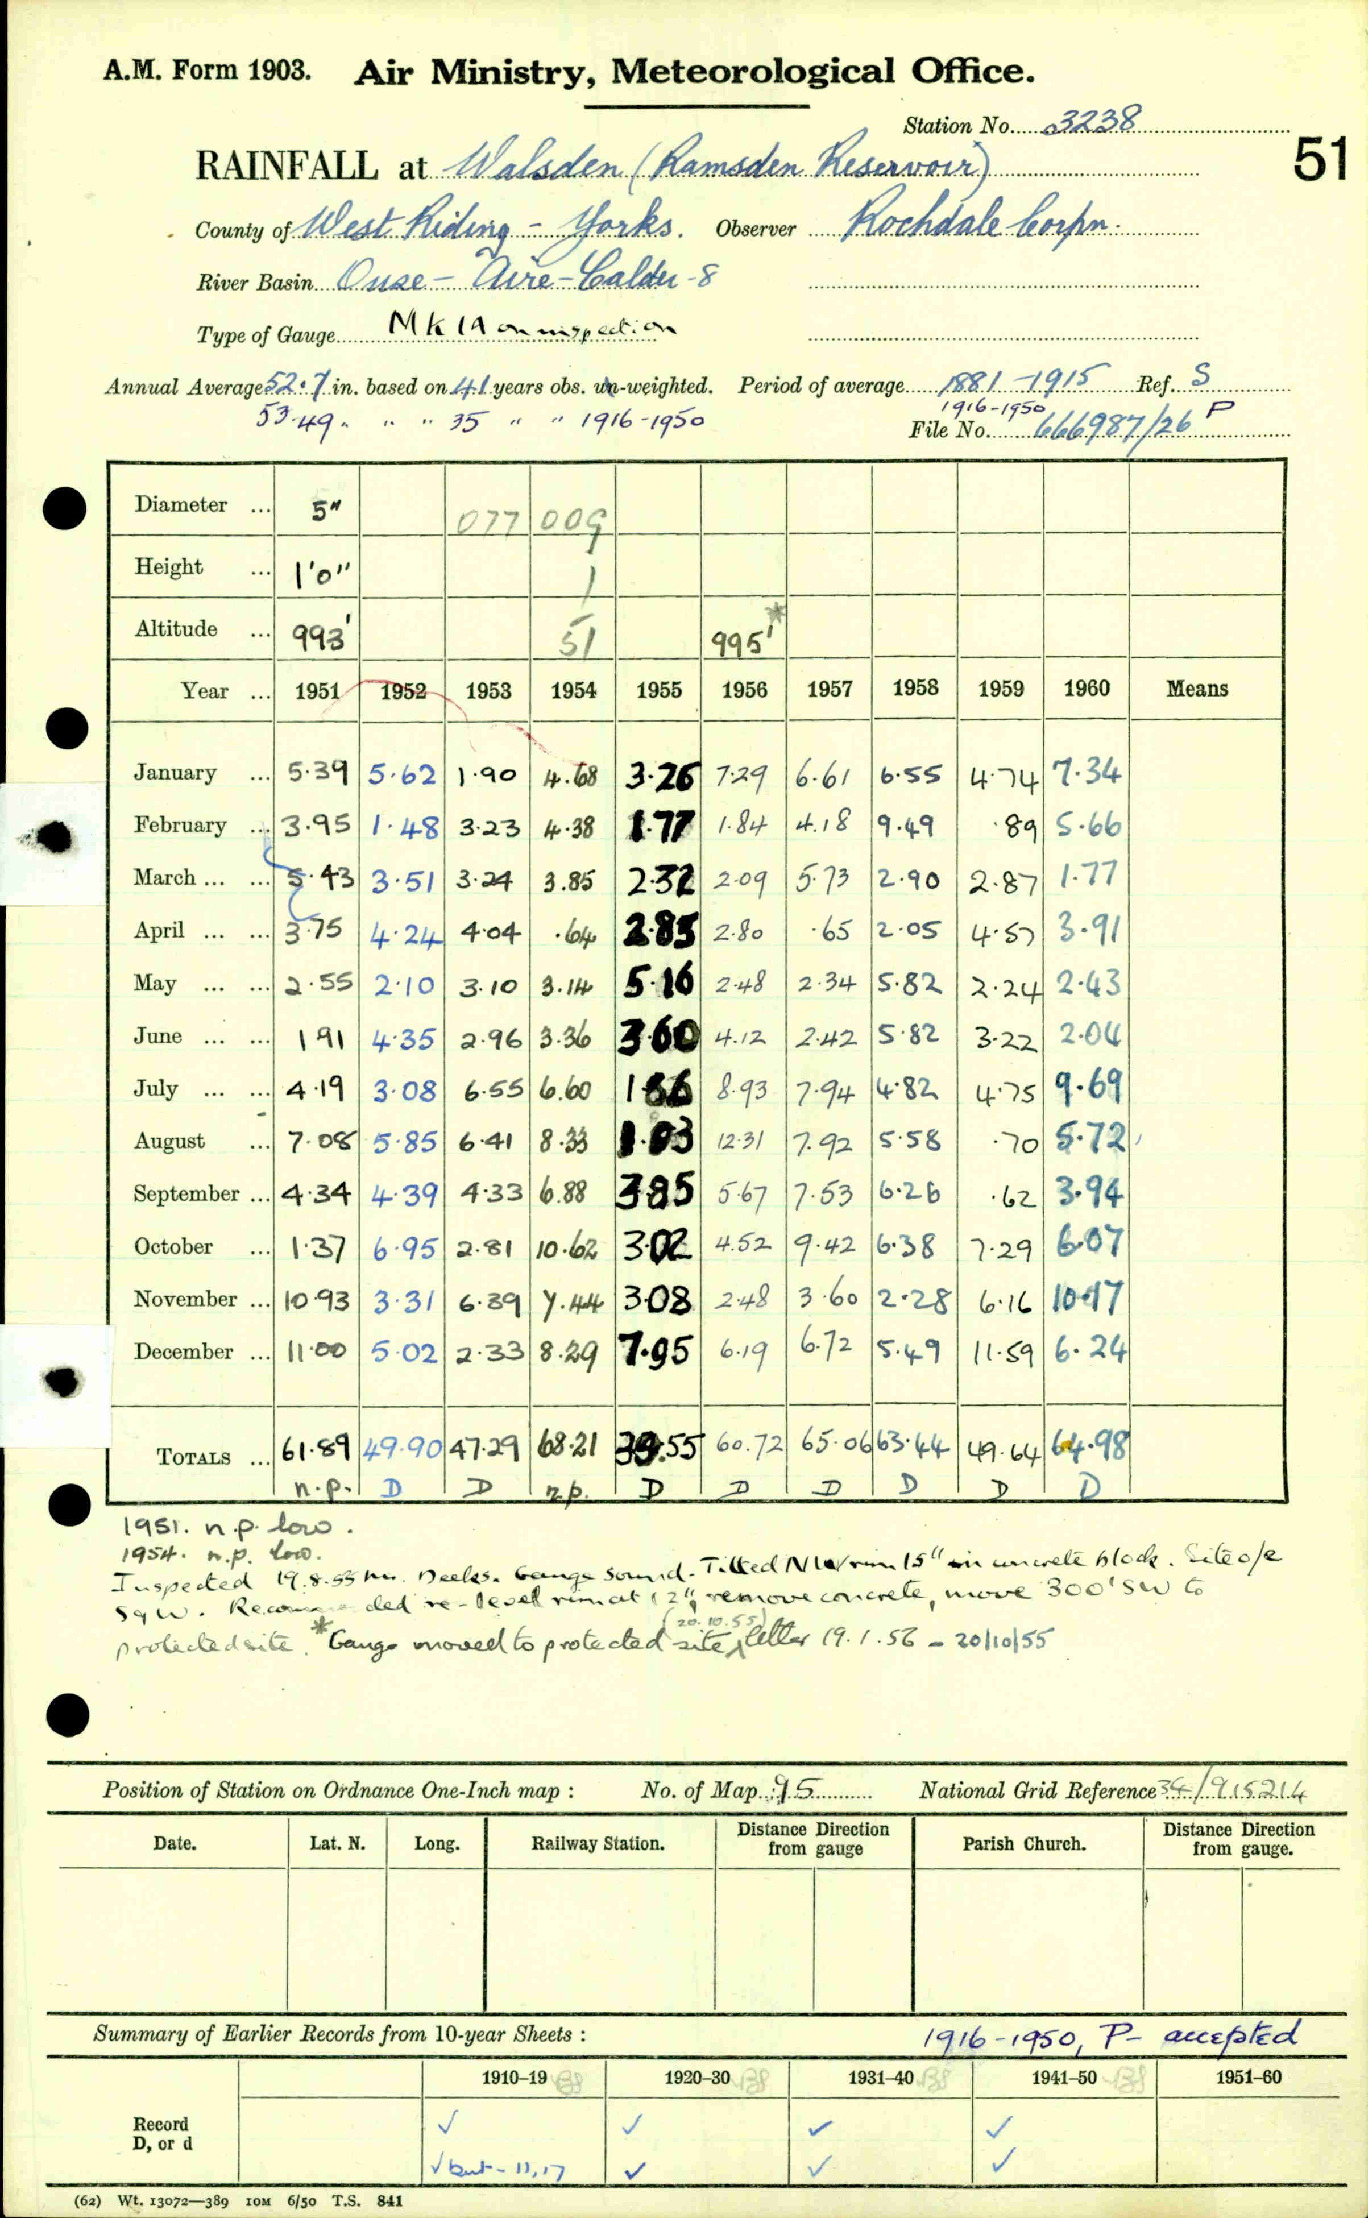 A.M. Form 1903. Air Ministry, Meteorological Office.
Station No. 3238
51
RAINFALL at Walsden (Ramsden Reservoir)
County of West Riding - Yorks. Observer Rochdale Corpn.
River Basin Ouse - Aire - Calder - 8
Type of Gauge Mk 1A on inspection
Annual Average 52.7 in. based on 41 years obs. un-weighted. Period of average 1881-1915 Ref. S
53.49 " " " 35 " " 1916-1950 1916-1950 P
File No. 666987/26
Diameter ... 5" 077 009
Height ... 1'0" 1
Altitude ... 993' 51 995' *
Year ... 1951 1952 1953 1954 1955 1956 1957 1958 1959 1960 Means
January ... 5.39 5.62 1.90 4.68 3.26 7.29 6.61 6.55 4.74 7.34
February ... 3.95 1.48 3.23 4.38 1.77 1.84 4.18 9.49 .89 5.66
March ... ... 5.43 3.51 3.24 3.85 2.32 2.09 5.73 2.90 2.87 1.77
April ... ... 3.75 4.24 4.04 .64 2.85 2.80 .65 2.05 4.57 3.91
May ... ... 2.55 2.10 3.10 3.14 5.16 2.48 2.34 5.82 2.24 2.43
June ... ... 1.91 4.35 2.96 3.36 3.60 4.12 2.42 5.82 3.22 2.04
July ... ... 4.19 3.08 6.55 6.60 1.66 8.93 7.94 4.82 4.75 9.69
August ... 7.08 5.85 6.41 8.33 1.03 12.31 7.92 5.58 .70 5.72
September ... 4.34 4.39 4.33 6.88 3.85 5.67 7.53 6.26 .62 3.94
October ... 1.37 6.95 2.81 10.62 3.02 4.52 9.42 6.38 7.29 6.07
November ... 10.93 3.31 6.39 7.44 3.08 2.48 3.60 2.28 6.16 10.17
December ... 11.00 5.02 2.33 8.29 7.95 6.19 6.72 5.49 11.59 6.24
TOTALS ... 61.89 49.90 47.29 68.21 39.55 60.72 65.06 63.44 49.64 64.98
n.p. D D n.p. D D D D D D
1951. n.p. low.
1954. n.p. low.
Inspected 19.8.55 Mr. Meeks. Gauge sound. Tilted NW rim 15" in concrete block. Site o/e
SqW. Recommended re-level rim at 12", remove concrete, move 300' SW to
protected site. *Gauge moved to protected site (20.10.55) letter 19.1.56 - 20/10/55
Position of Station on Ordnance One-Inch map : No. of Map : 95 National Grid Reference 34/915214
Date. Lat. N. Long. Railway Station. Distance Direction from gauge Parish Church. Distance Direction from gauge.
Summary of Earlier Records from 10-year Sheets : 1916-1950, P- accepted
1910–19 1920–30 1931–40 1941–50 1951–60
Record ✓ ✓ ✓ ✓
D, or d ✓ but - 11,17 ✓ ✓ ✓
(62) Wt. 13072—389 10M 6/50 T.S. 841